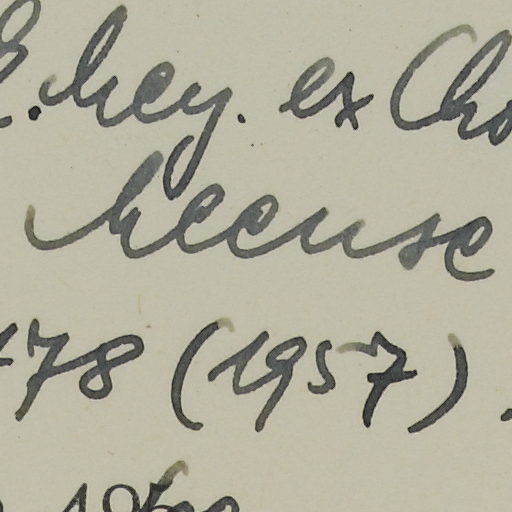 E. Mey. ex Cho
Meeuse
178 (1957).
1960